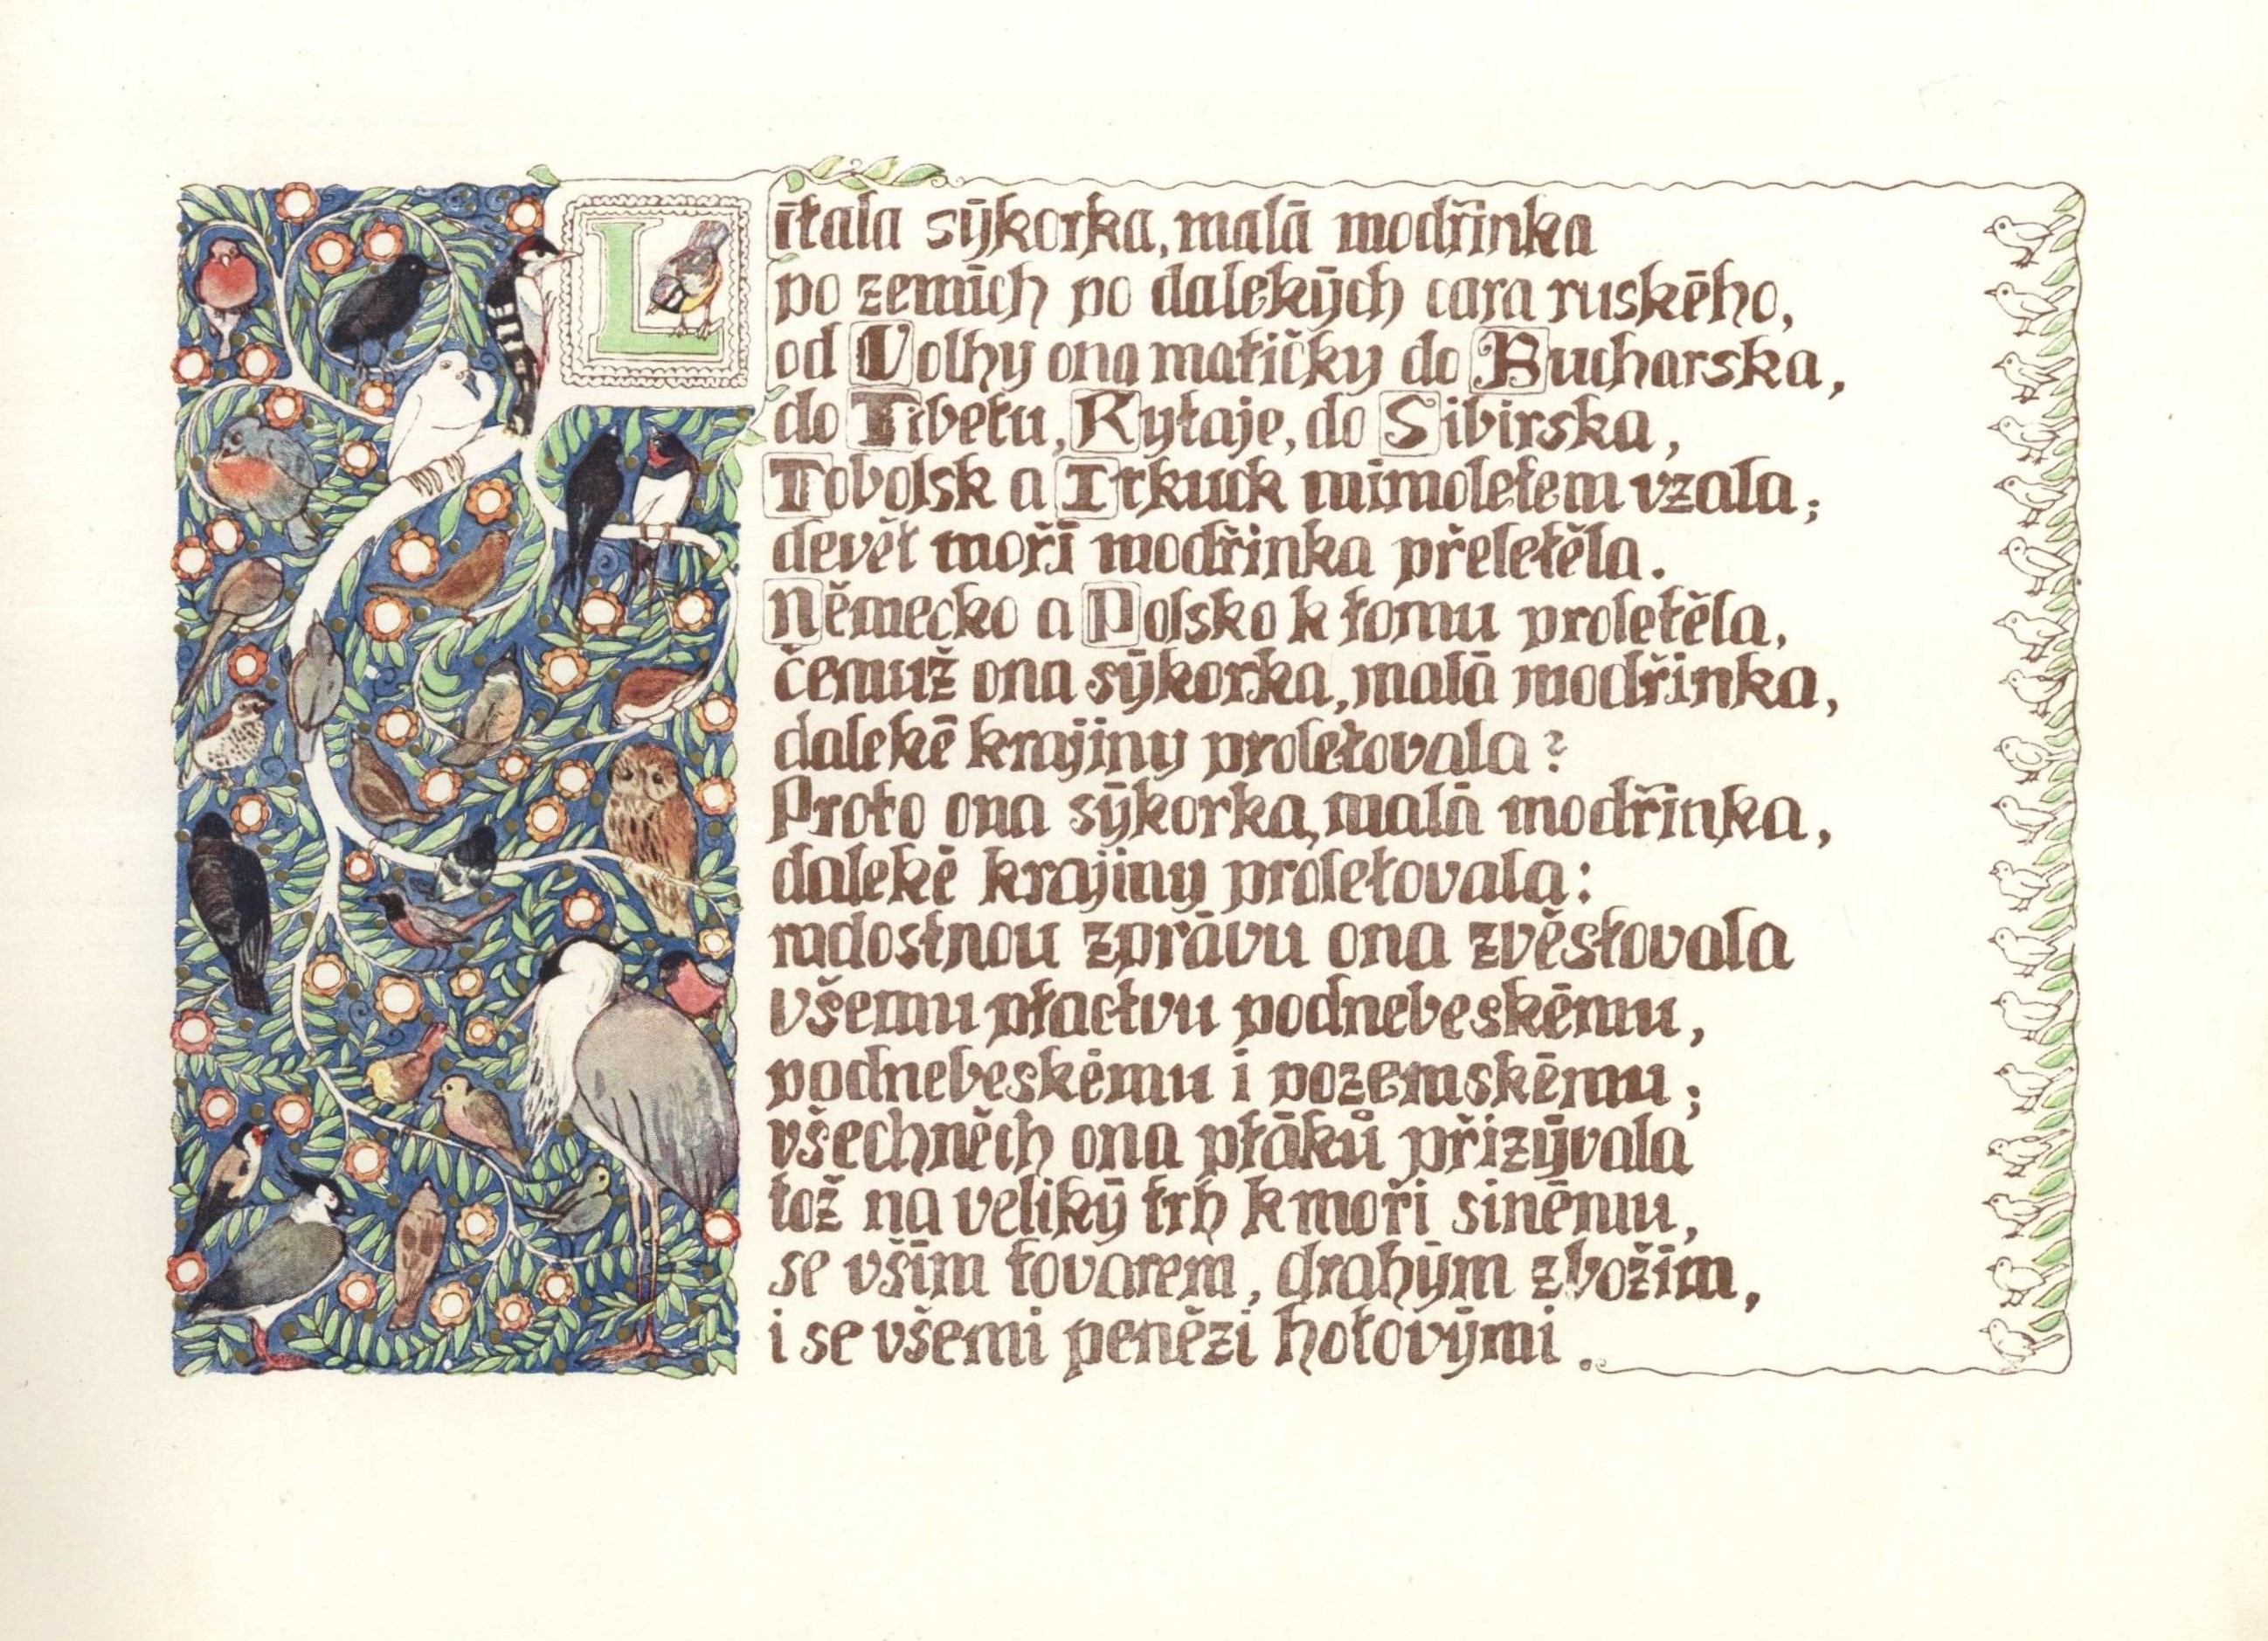 Lítala sýkorka, malá modřinka
po zemích po dalekých cara ruského,
od Volhy ona matičky do Bucharska,
do Tibetu, Kytaje, do Sibirska,
Tobolsk a Irkuck mimoletem vzala;
devět moří modřinka přeletěla.
Německo a Polsko k tomu proletěla,
čemuž ona sýkorka, malá modřinka,
daleké krajiny proletovala?
Proto ona sýkorka, malá modřinka,
daleké krajiny proletovala:
radostnou zprávu ona zvěstovala
všemu ptactvu podnebeskému,
podnebeskému i pozemskému;
všechněch ona ptáků přizývala
tož na veliký trh k moři sinému,
se vším tovarem, drahým zbožím,
i se všemi penězi hotovými.